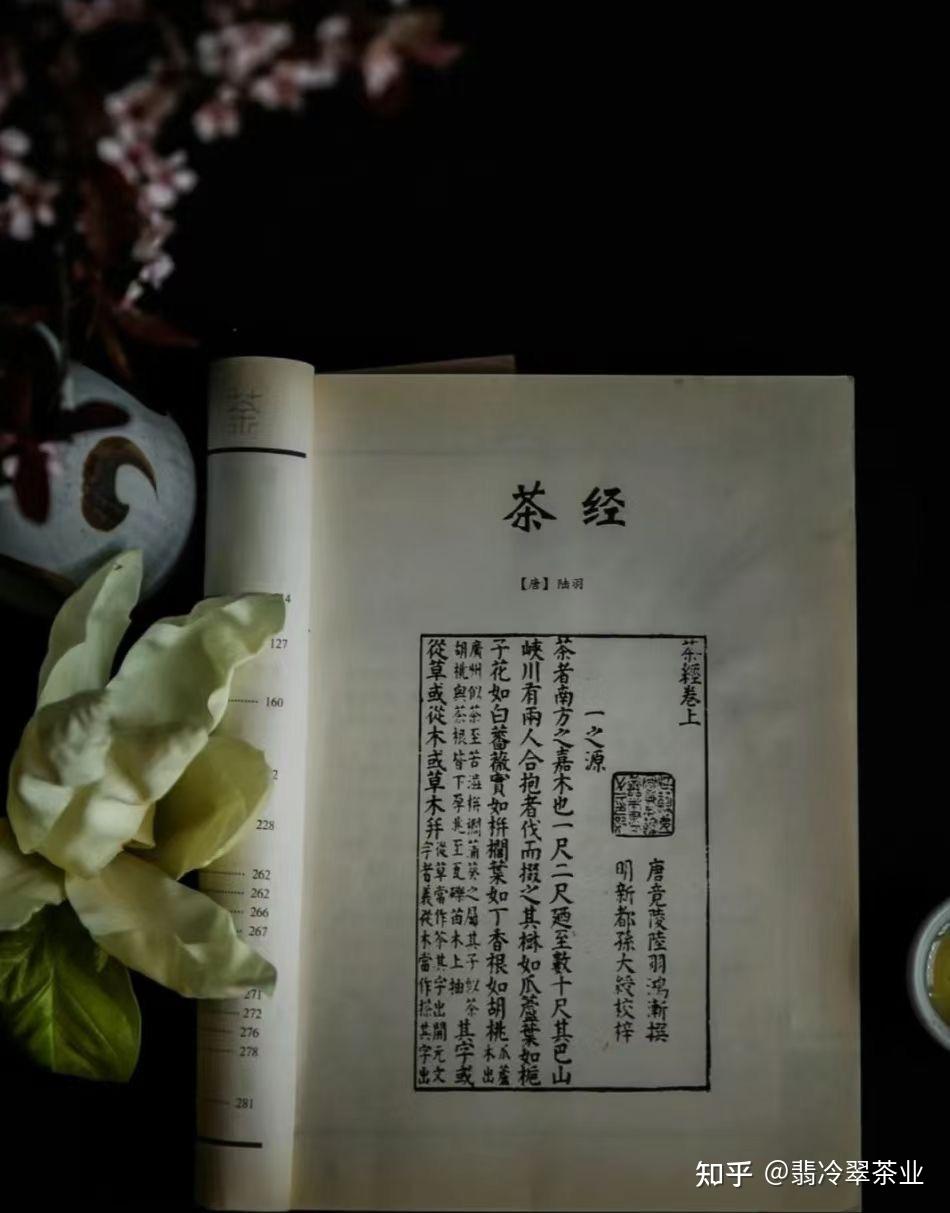 茶
127
160
228
262
262
266
267
271
272
276
278
281
茶经
【唐】陆羽
茶經卷上
唐竟陵陸羽鴻漸撰
明新都孫大綬校梓
一之源
茶者南方之嘉木也一尺二尺廼至數十尺其巴山
峽川有兩人合抱者伐而掇之其樹如瓜蘆葉如梔
子花如白薔薇實如栟櫚葉如丁香根如胡桃瓜蘆木出
廣州似茶至苦澁栟櫚蒲葵之屬其子似茶
胡桃與茶根皆下孕兆至瓦礫苗木上抽其字或
從草或從木或草木并從草當作茶其字出開元文
字者義從木當作搽其字出
知乎 @翡冷翠茶业